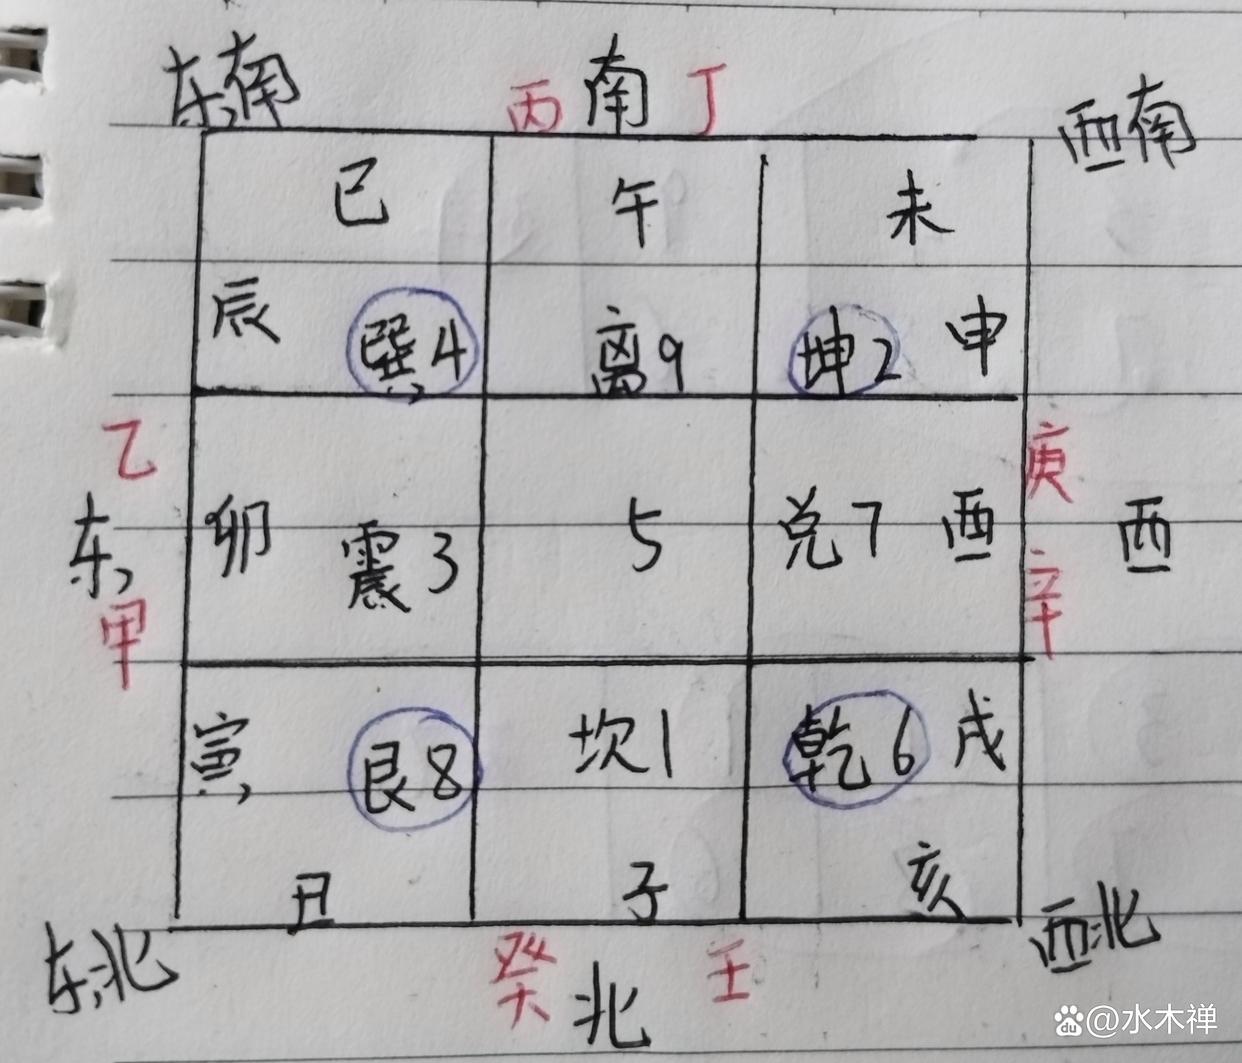 东南 丙 南 丁 西南
巳 午 未
辰 巽4 离9 坤2 申
乙 庚
东 卯 震3 5 兑7 酉 西
甲 辛
寅 艮8 坎1 乾6 戌
丑 子 亥
东北 癸 北 壬 西北
du @水木禅